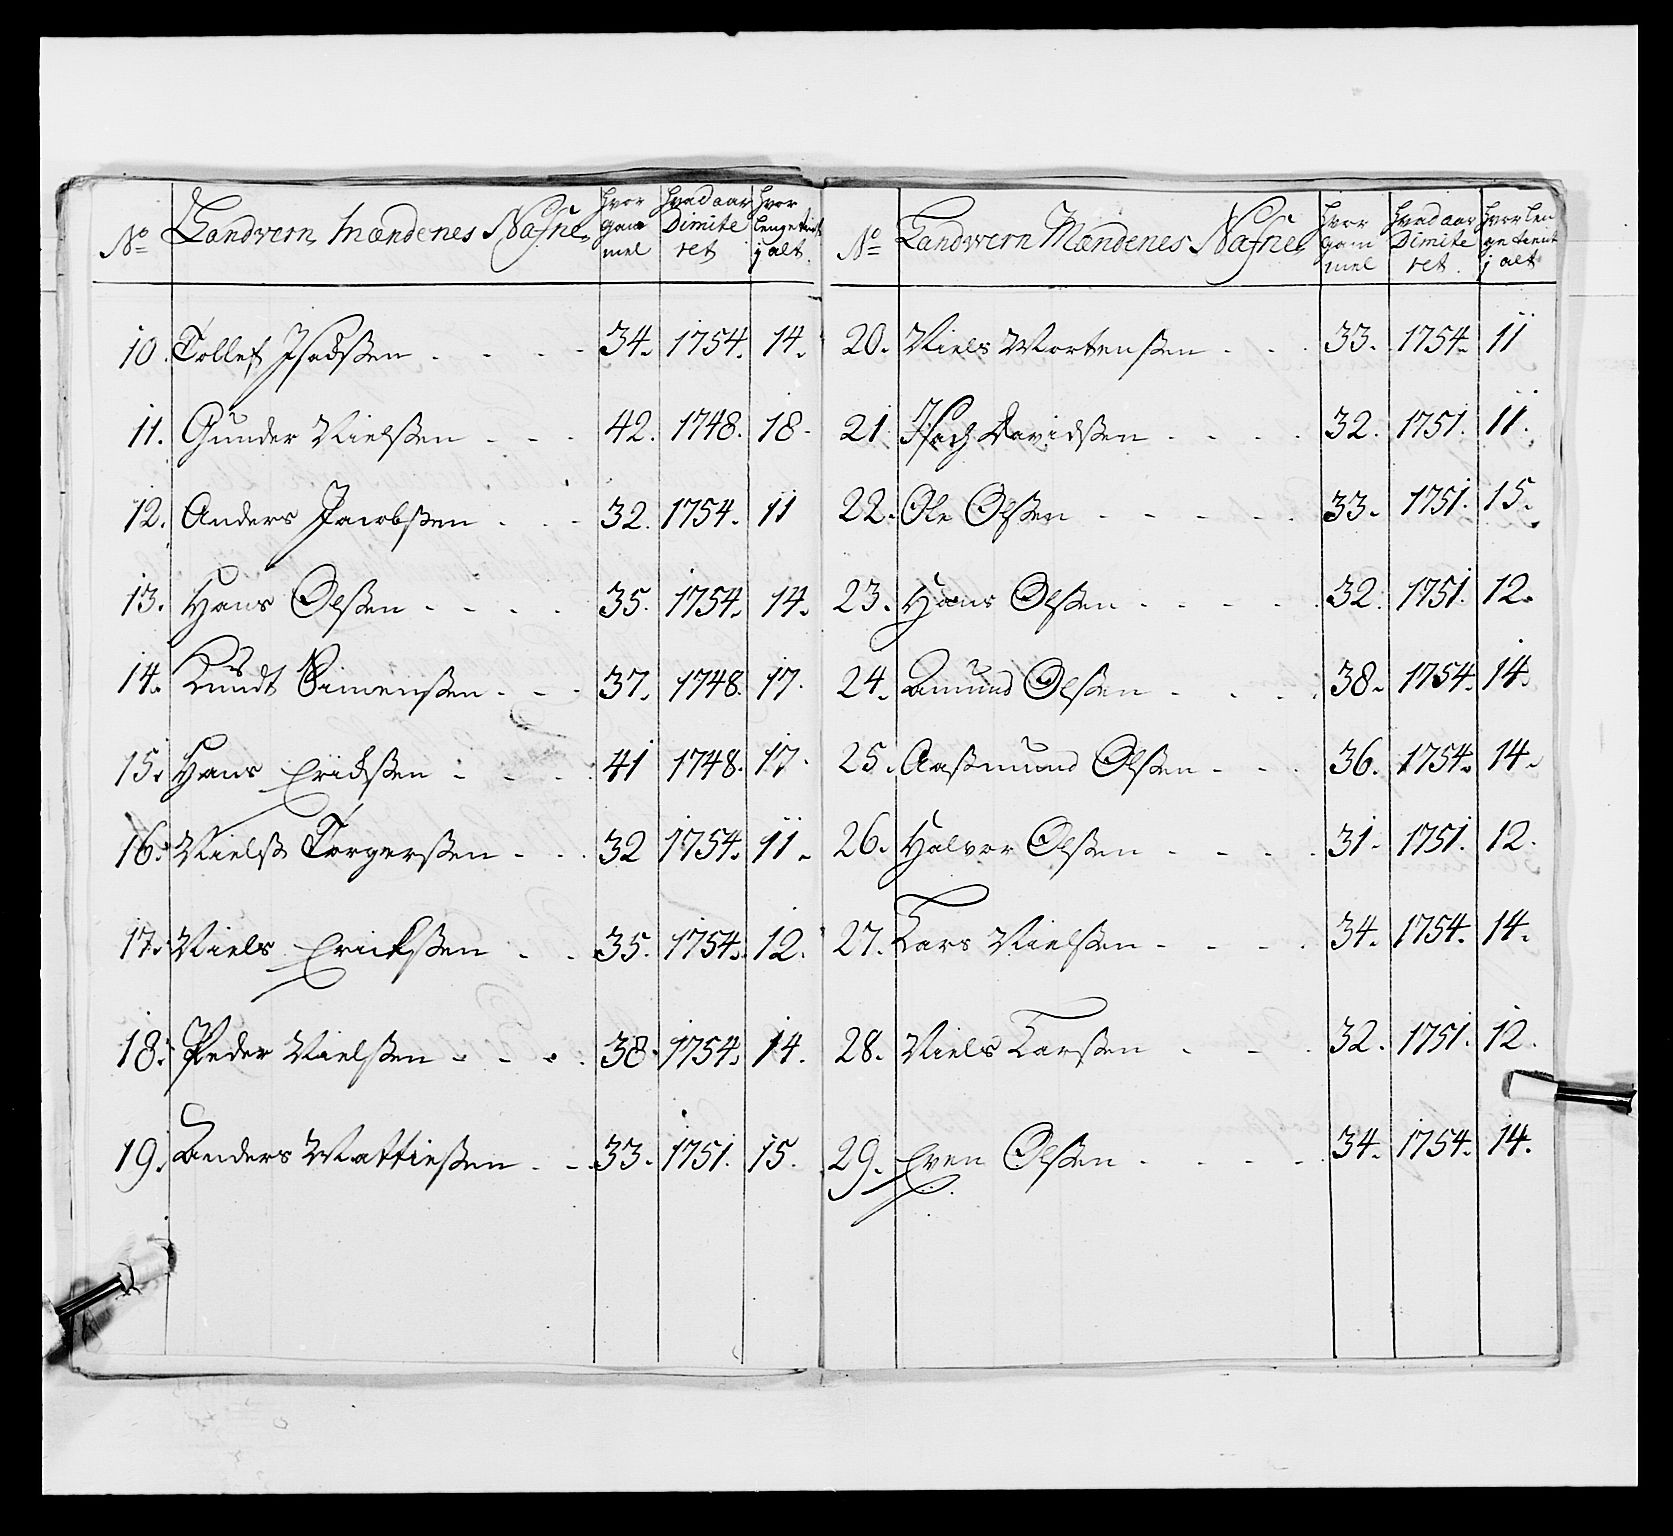 No Landvern Mændenes Nafne hvor gam mel hvad aar Dimite ret hvor lenge tient j alt.
10. Tollef Isachsen 34. 1754. 14.
11. Gunder Nielsßen 42. 1748. 18.
12. Anders Jacobsßen 32. 1754. 11
13. Hans Olsßen 35. 1754. 14.
14. Knudt Simensßen 37. 1748. 17.
15. Hans Ericksßen 41 1748. 17.
16. Nielsß Torgersßen 32 1754. 11.
17. Niels Ericksßen 35. 1754. 12.
18. Peder Nielsßen 38. 1754. 14.
19. Anders Mattiesßen 33. 1751. 15.
No Landvern Mændenes Nafne hvor gam mel hvad aar Dimite ret. hvor len ge tient j alt
20. Niels Mortensßen 33. 1754. 11
21 Isach Davidsßen 32. 1751. 11.
22. Ole Olsßen 33. 1751. 15.
23. Hans Olsßen 32. 1751. 12.
24. Amund Olsßen 38. 1754. 14.
25. Aasmund Olsßen 36. 1754. 14.
26. Halvor Olsßen 31. 1751. 12.
27. Lars Nielsßen 34. 1754. 14.
28. Niels Larsßen 32. 1751. 12.
29. Even Olsßen 34. 1754. 14.